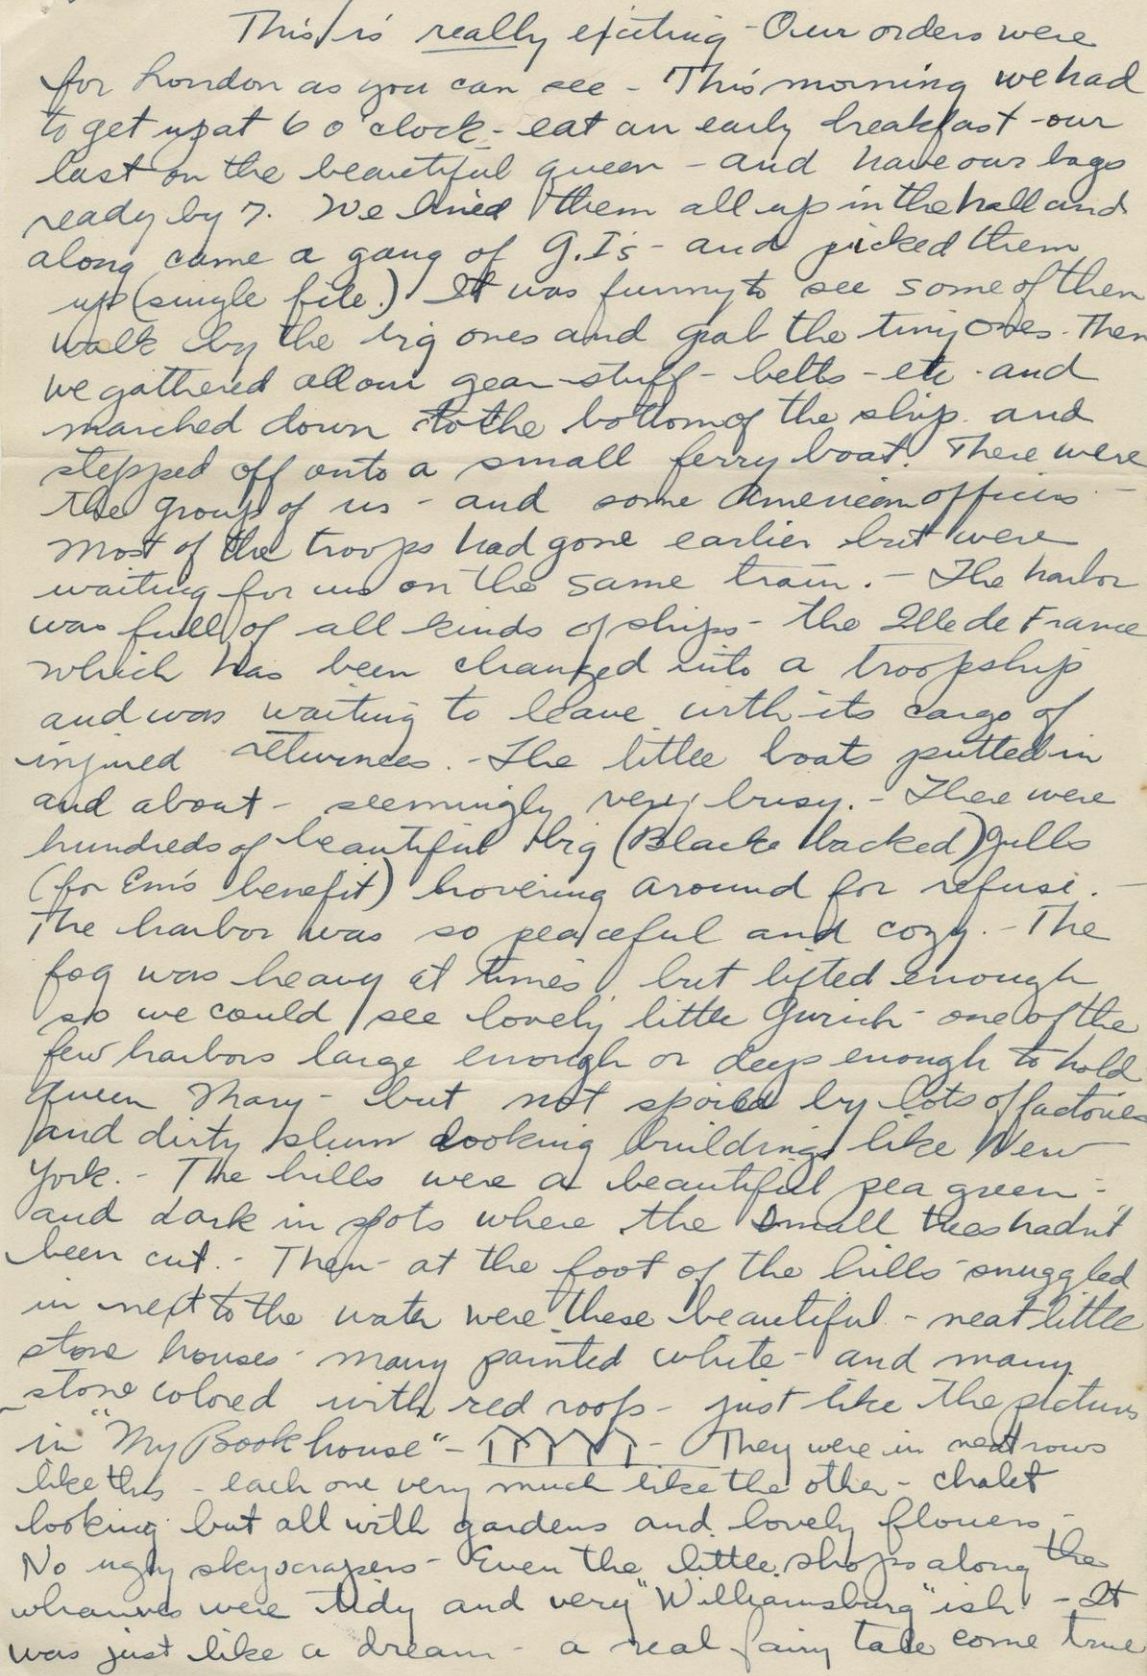 This is really exciting - Our orders were
for London as you can see - This morning we had
to get up at 6 o'clock - eat an early breakfast - our
last on the beautiful queen - and have our bags
ready by 7. We lined them all up in the hall and
along came a gang of G.I's - and picked them
up (single file.) It was funny to see some of them
walk by the big ones and grab the tiny ones. Then
we gathered all our gear - stuff - belts - etc - and
marched down to the bottom of the ship and
stepped off onto a small ferry boat. There were
the group of us - and some American officers -
Most of the troops had gone earlier but were
waiting for us on the same train. - The harbor
was full of all kinds of ships - the Ille de France
which has been changed into a troopship
and was waiting to leave with its cargo of
injured returnees. - The little boats putted in
and about - seemingly very busy. - There were
hundreds of beautiful big (Black backed) gulls
(for Em's benefit) hovering around for refuse. -
The harbor was so peaceful and cozy. - The
fog was heavy at times but lifted enough
so we could see lovely little - one of the
few harbors large enough or deep enough to hold
Queen Mary - but not spoiled by lots of factories
and dirty slum looking buildings like New
York. - The hills were a beautiful pea green -
and dark in spots where the small trees hadn't
been cut. - Then - at the foot of the hills - snuggled
in next to the water were these beautiful - neat little
stone houses - many painted white - and many
stone colored with red roofs - just like the pictures
in "My Bookhouse" - They were in neat rows
like this - each one very much like the other - chalet
looking but all with gardens and lovely flowers -
No ugly skyscrapers - Even the little shops along the
wharves were tidy and very "Williamsburg" ish! - It
was just like a dream - a real fairy tale come true